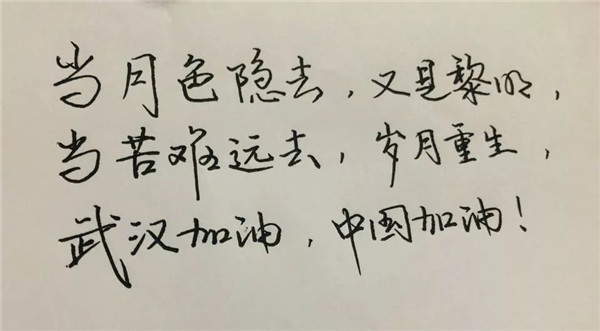 当月色隐去，又是黎明，
当苦难远去，岁月重生，
武汉加油，中国加油！